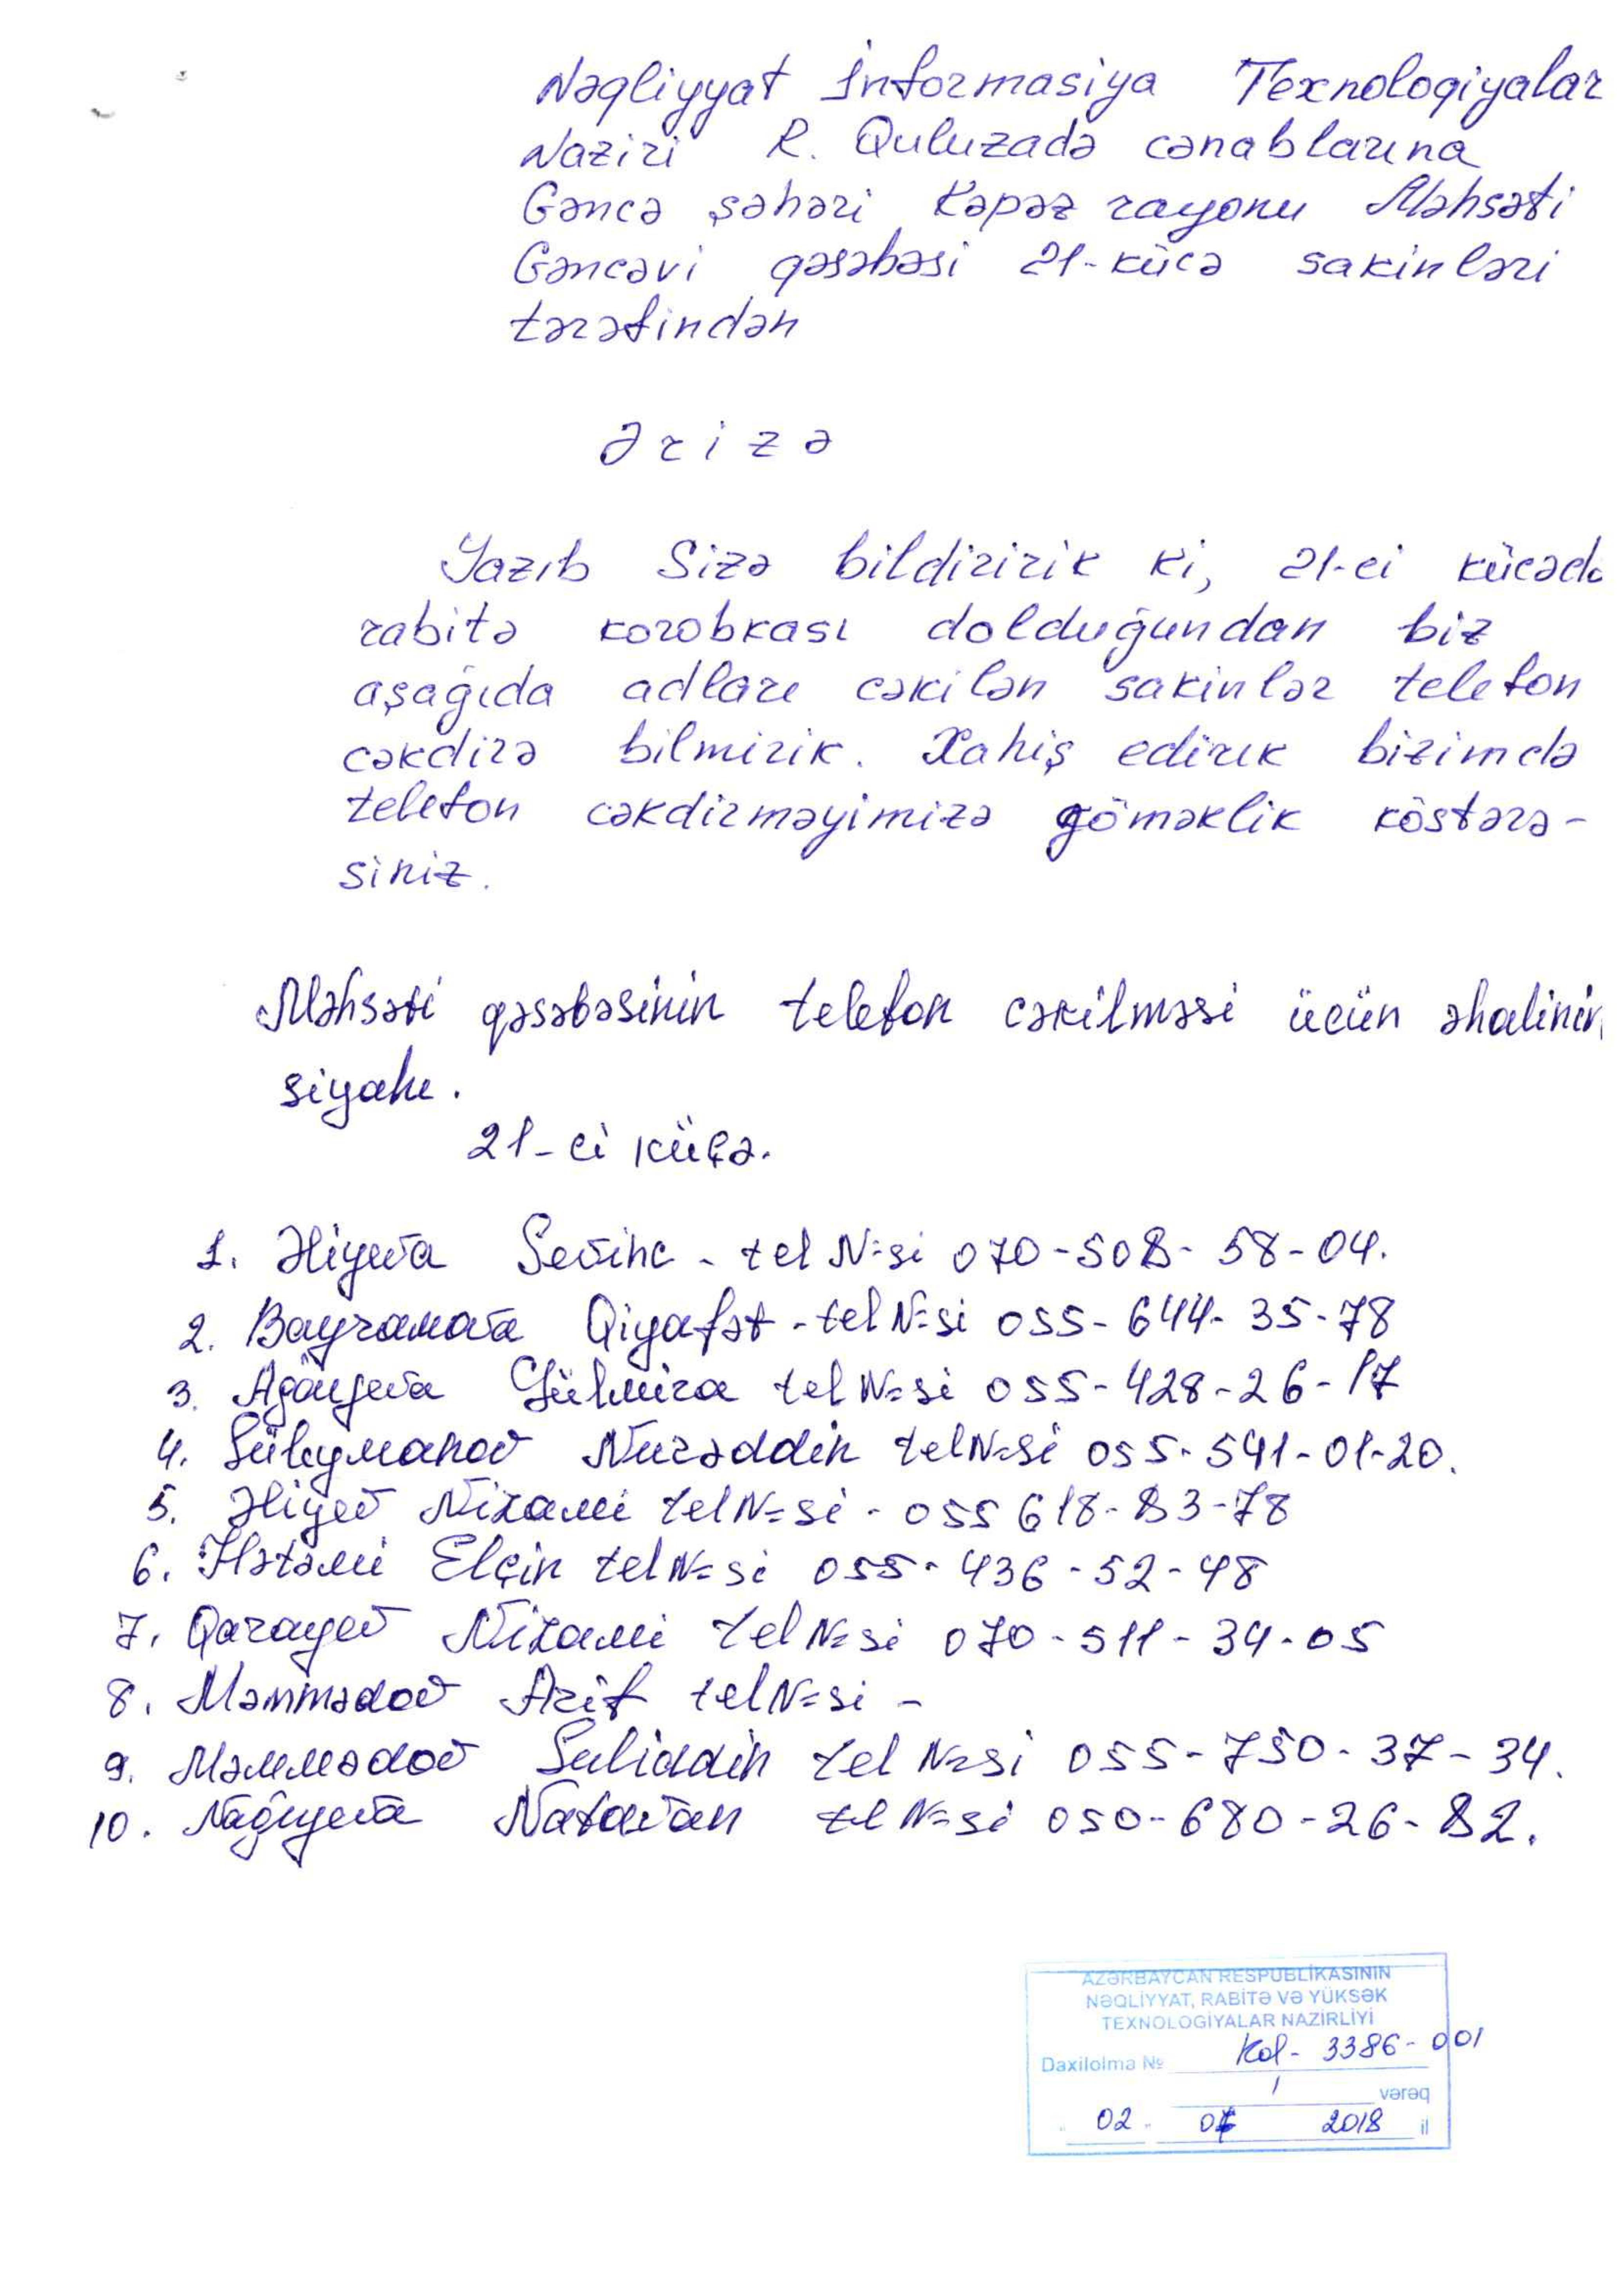 Nəqliyyat İnformasiya Texnologiyalar
Naziri R. Quluzadə cənablarına
Gəncə şəhəri Kəpəz rayonu Məhsəti
Gəncəvi qəsəbəsi 21-kücə sakinləri
tərəfindən
Ərizə
Yazıb Sizə bildiririk ki, 21-ci kücədə
rabitə korobkası dolduğundan biz
aşağıda adları cəkilən sakinlər telefon
cəkdirə bilmirik. Xahiş edirik bizimdə
telefon cəkdirməyimizə göməklik köstərə-
siniz.
Məhsəti qəsəbəsinin telefon cəkilməsi ücün əhalinin
siyahı.
21-ci küçə.
1. Əliyeva Sevinc - tel №si 070-508-58-04.
2. Bayramova Qiyafət - tel №si 055-644-35-78
3. Ağayeva Gülmira tel №si 055-428-26-17
4. Süleymanov Nurəddin tel №si 055-541-01-20.
5. Əliyev Nizami tel №si - 055 618-83-78
6. Hətəmi Elçin tel №si 055-436-52-48
7. Qarayev Nizami tel №si 070-511-34-05
8. Məmmədov Arif tel №si -
9. Məmmədov Saliddin tel №si 055-750-37-34.
10. Nağıyeva Natavan tel №si 050-680-26-82.
AZƏRBAYCAN RESPUBLİKASININ
NƏQLİYYAT, RABİTƏ VƏ YÜKSƏK
TEXNOLOGİYALAR NAZİRLİYİ
Daxilolma № Kol- 3386-001
1 vərəq
02 07 2018 il